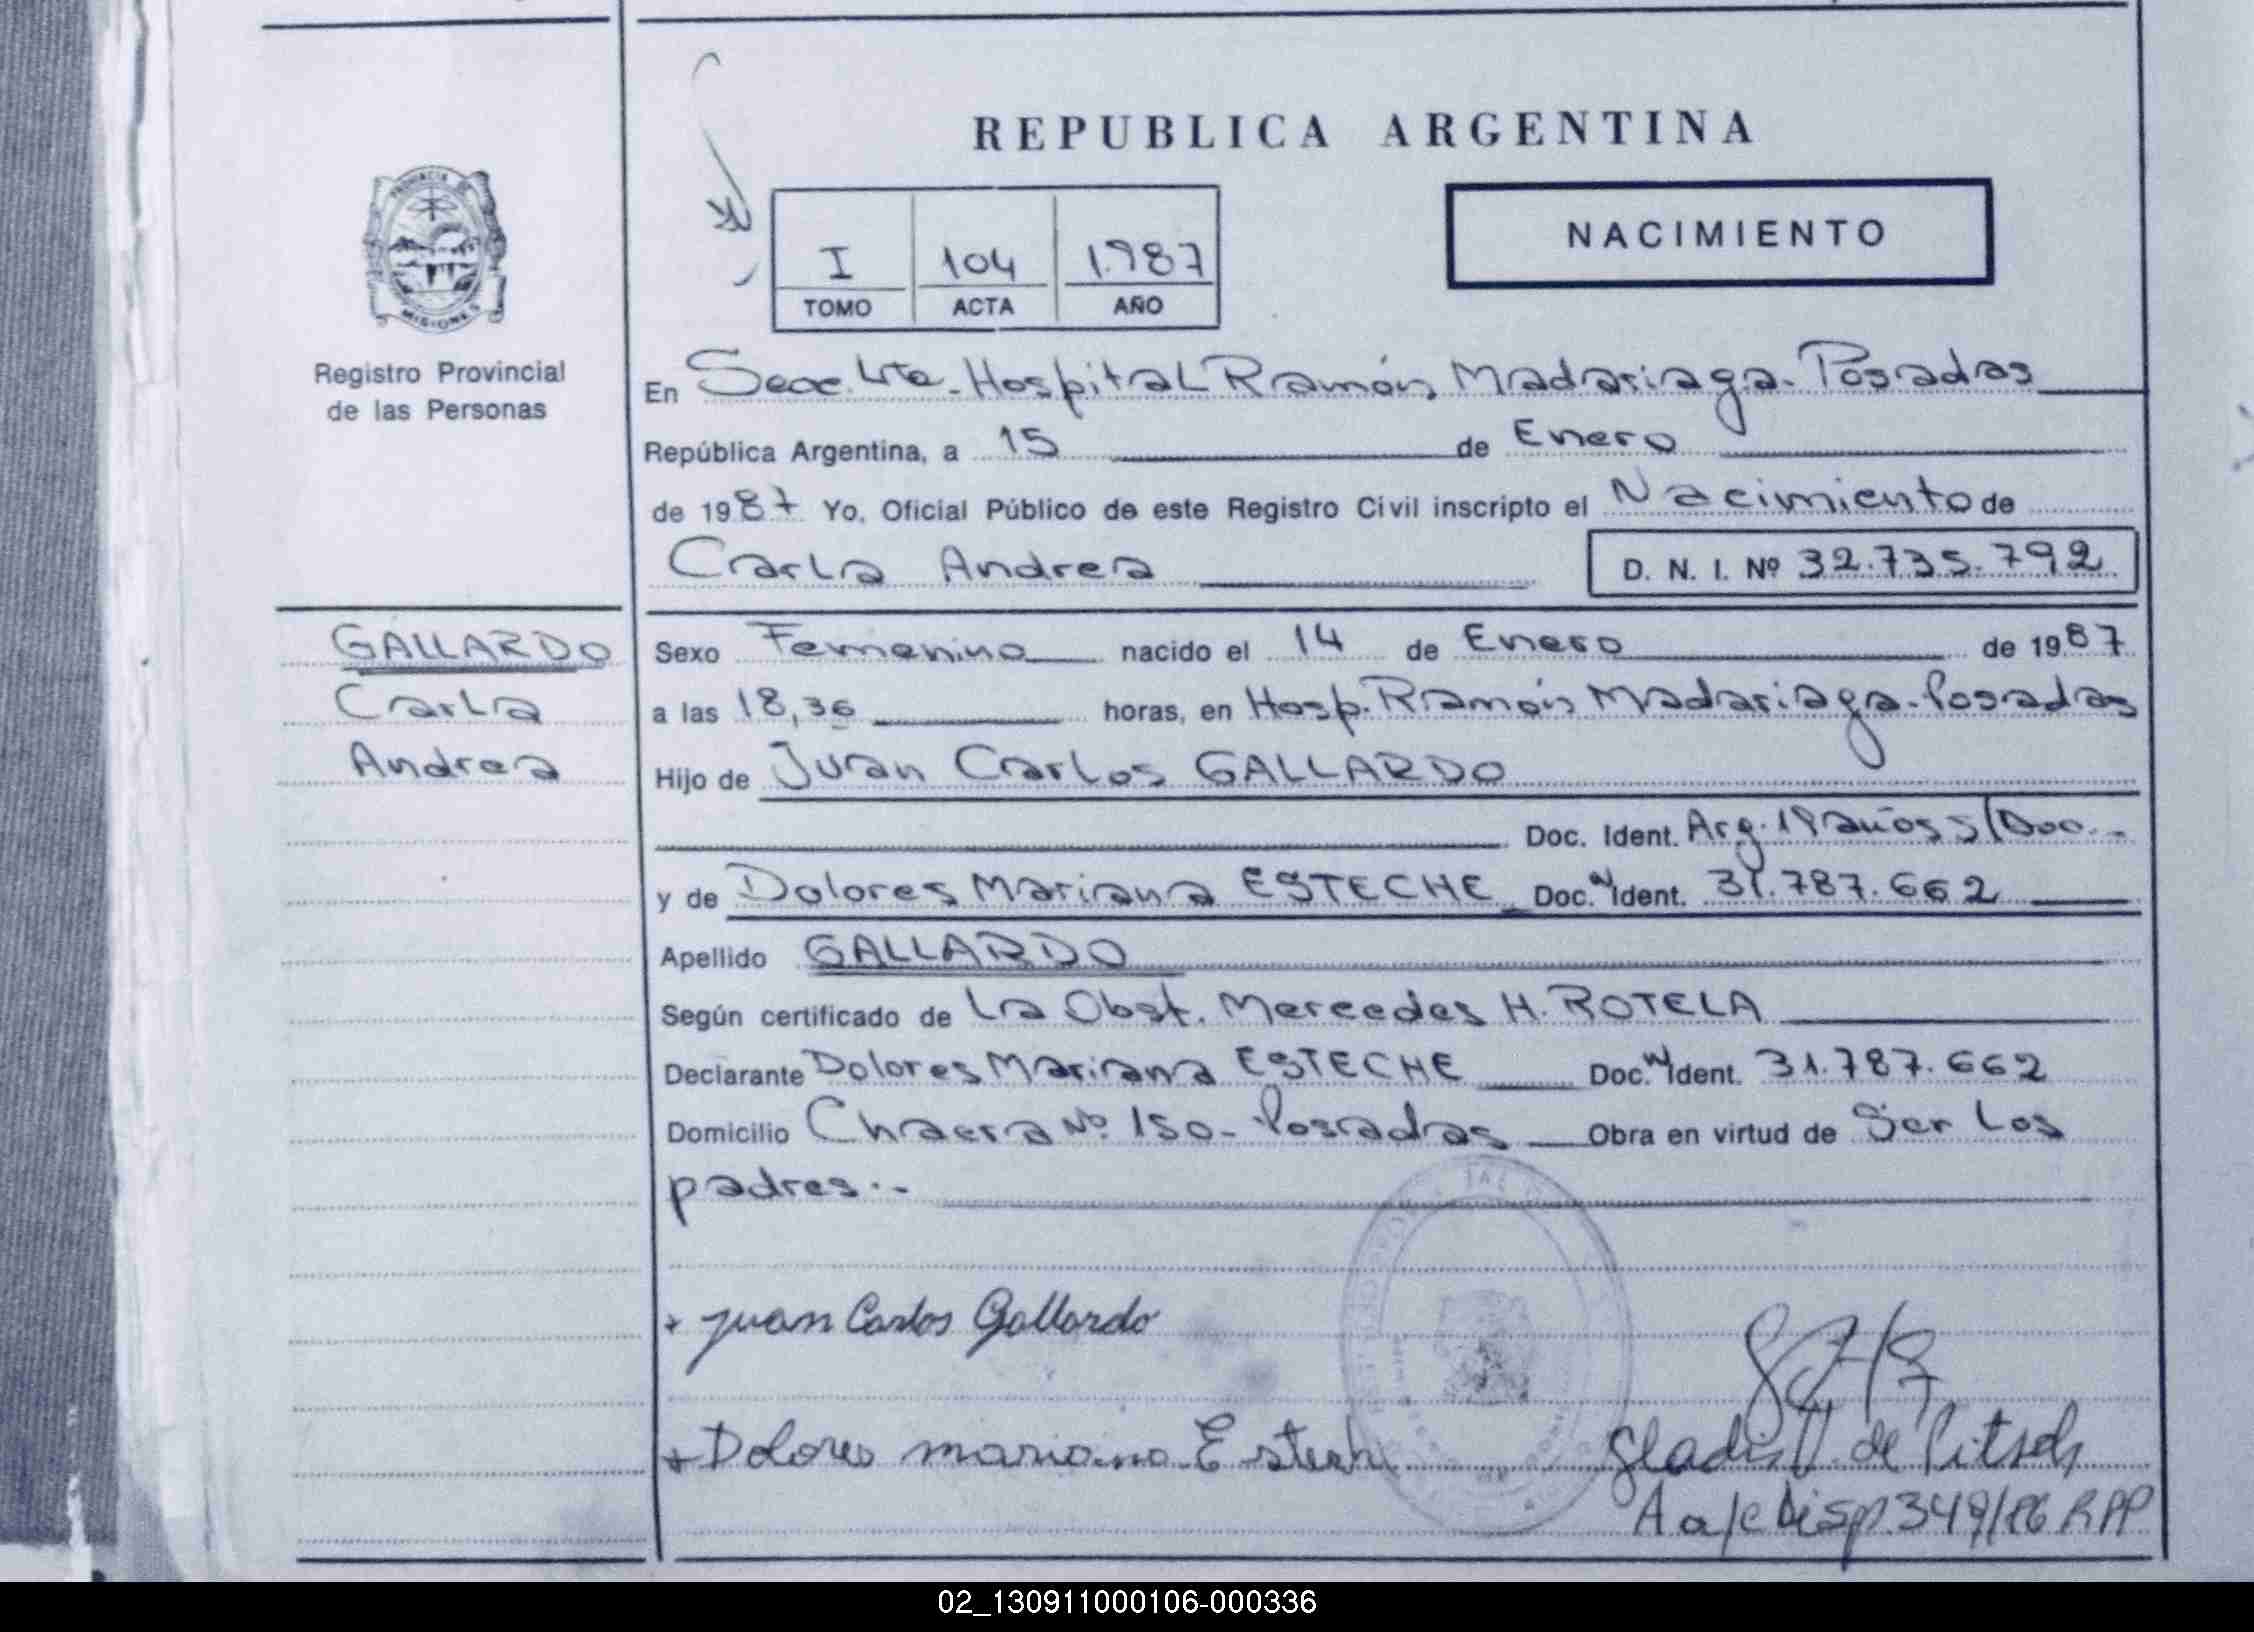 REPUBLICA ARGENTINA
PROVINCIA DE
MISIONES
Registro Provincial
de las Personas
I 104 1.987
TOMO ACTA AÑO
NACIMIENTO
En Secc. 4ta. Hospital Ramón Madariaga. Posadas
República Argentina, a 15 de Enero
de 1987 Yo, Oficial Público de este Registro Civil inscripto el Nacimiento de
Carla Andrea D. N. I. Nº 32.735.792
GALLARDO
Carla
Andrea
Sexo Femenino nacido el 14 de Enero de 1987
a las 18,36 horas, en Hosp. Ramón Madariaga. Posadas
Hijo de Juan Carlos GALLARDO
Doc. Ident. Arg. 19 años s/Doc.-
y de Dolores Mariana ESTECHE Doc. Ident. 31.787.662
Apellido GALLARDO
Según certificado de La Obst. Mercedes H. ROTELA
Declarante Dolores Mariana ESTECHE Doc. Ident. 31.787.662
Domicilio Chacra Nº 150- Posadas Obra en virtud de Ser los
padres.-
Juan Carlos Gallardo
Dolores mariana Estech
Gladis de
A a/c Disp. 349/86 RPP
02_130911000106-000336